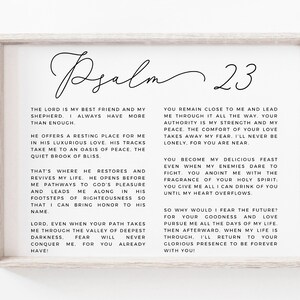 Psalm 23
THE LORD IS MY BEST FRIEND AND MY
SHEPHERD. I ALWAYS HAVE MORE
THAN ENOUGH.
HE OFFERS A RESTING PLACE FOR ME
IN HIS LUXURIOUS LOVE. HIS TRACKS
TAKE ME TO AN OASIS OF PEACE, THE
QUIET BROOK OF BLISS.
THAT'S WHERE HE RESTORES AND
REVIVES MY LIFE. HE OPENS BEFORE
ME PATHWAYS TO GOD'S PLEASURE
AND LEADS ME ALONG IN HIS
FOOTSTEPS OF RIGHTEOUSNESS SO
THAT I CAN BRING HONOR TO HIS
NAME.
LORD, EVEN WHEN YOUR PATH TAKES
ME THROUGH THE VALLEY OF DEEPEST
DARKNESS, FEAR WILL NEVER
CONQUER ME, FOR YOU ALREADY
HAVE!
YOU REMAIN CLOSE TO ME AND LEAD
ME THROUGH IT ALL THE WAY. YOUR
AUTHORITY IS MY STRENGTH AND MY
PEACE. THE COMFORT OF YOUR LOVE
TAKES AWAY MY FEAR. I'LL NEVER BE
LONELY, FOR YOU ARE NEAR.
YOU BECOME MY DELICIOUS FEAST
EVEN WHEN MY ENEMIES DARE TO
FIGHT. YOU ANOINT ME WITH THE
FRAGRANCE OF YOUR HOLY SPIRIT;
YOU GIVE ME ALL I CAN DRINK OF YOU
UNTIL MY HEART OVERFLOWS.
SO WHY WOULD I FEAR THE FUTURE?
FOR YOUR GOODNESS AND LOVE
PURSUE ME ALL THE DAYS OF MY LIFE.
THEN AFTERWARD, WHEN MY LIFE IS
THROUGH, I'LL RETURN TO YOUR
GLORIOUS PRESENCE TO BE FOREVER
WITH YOU!